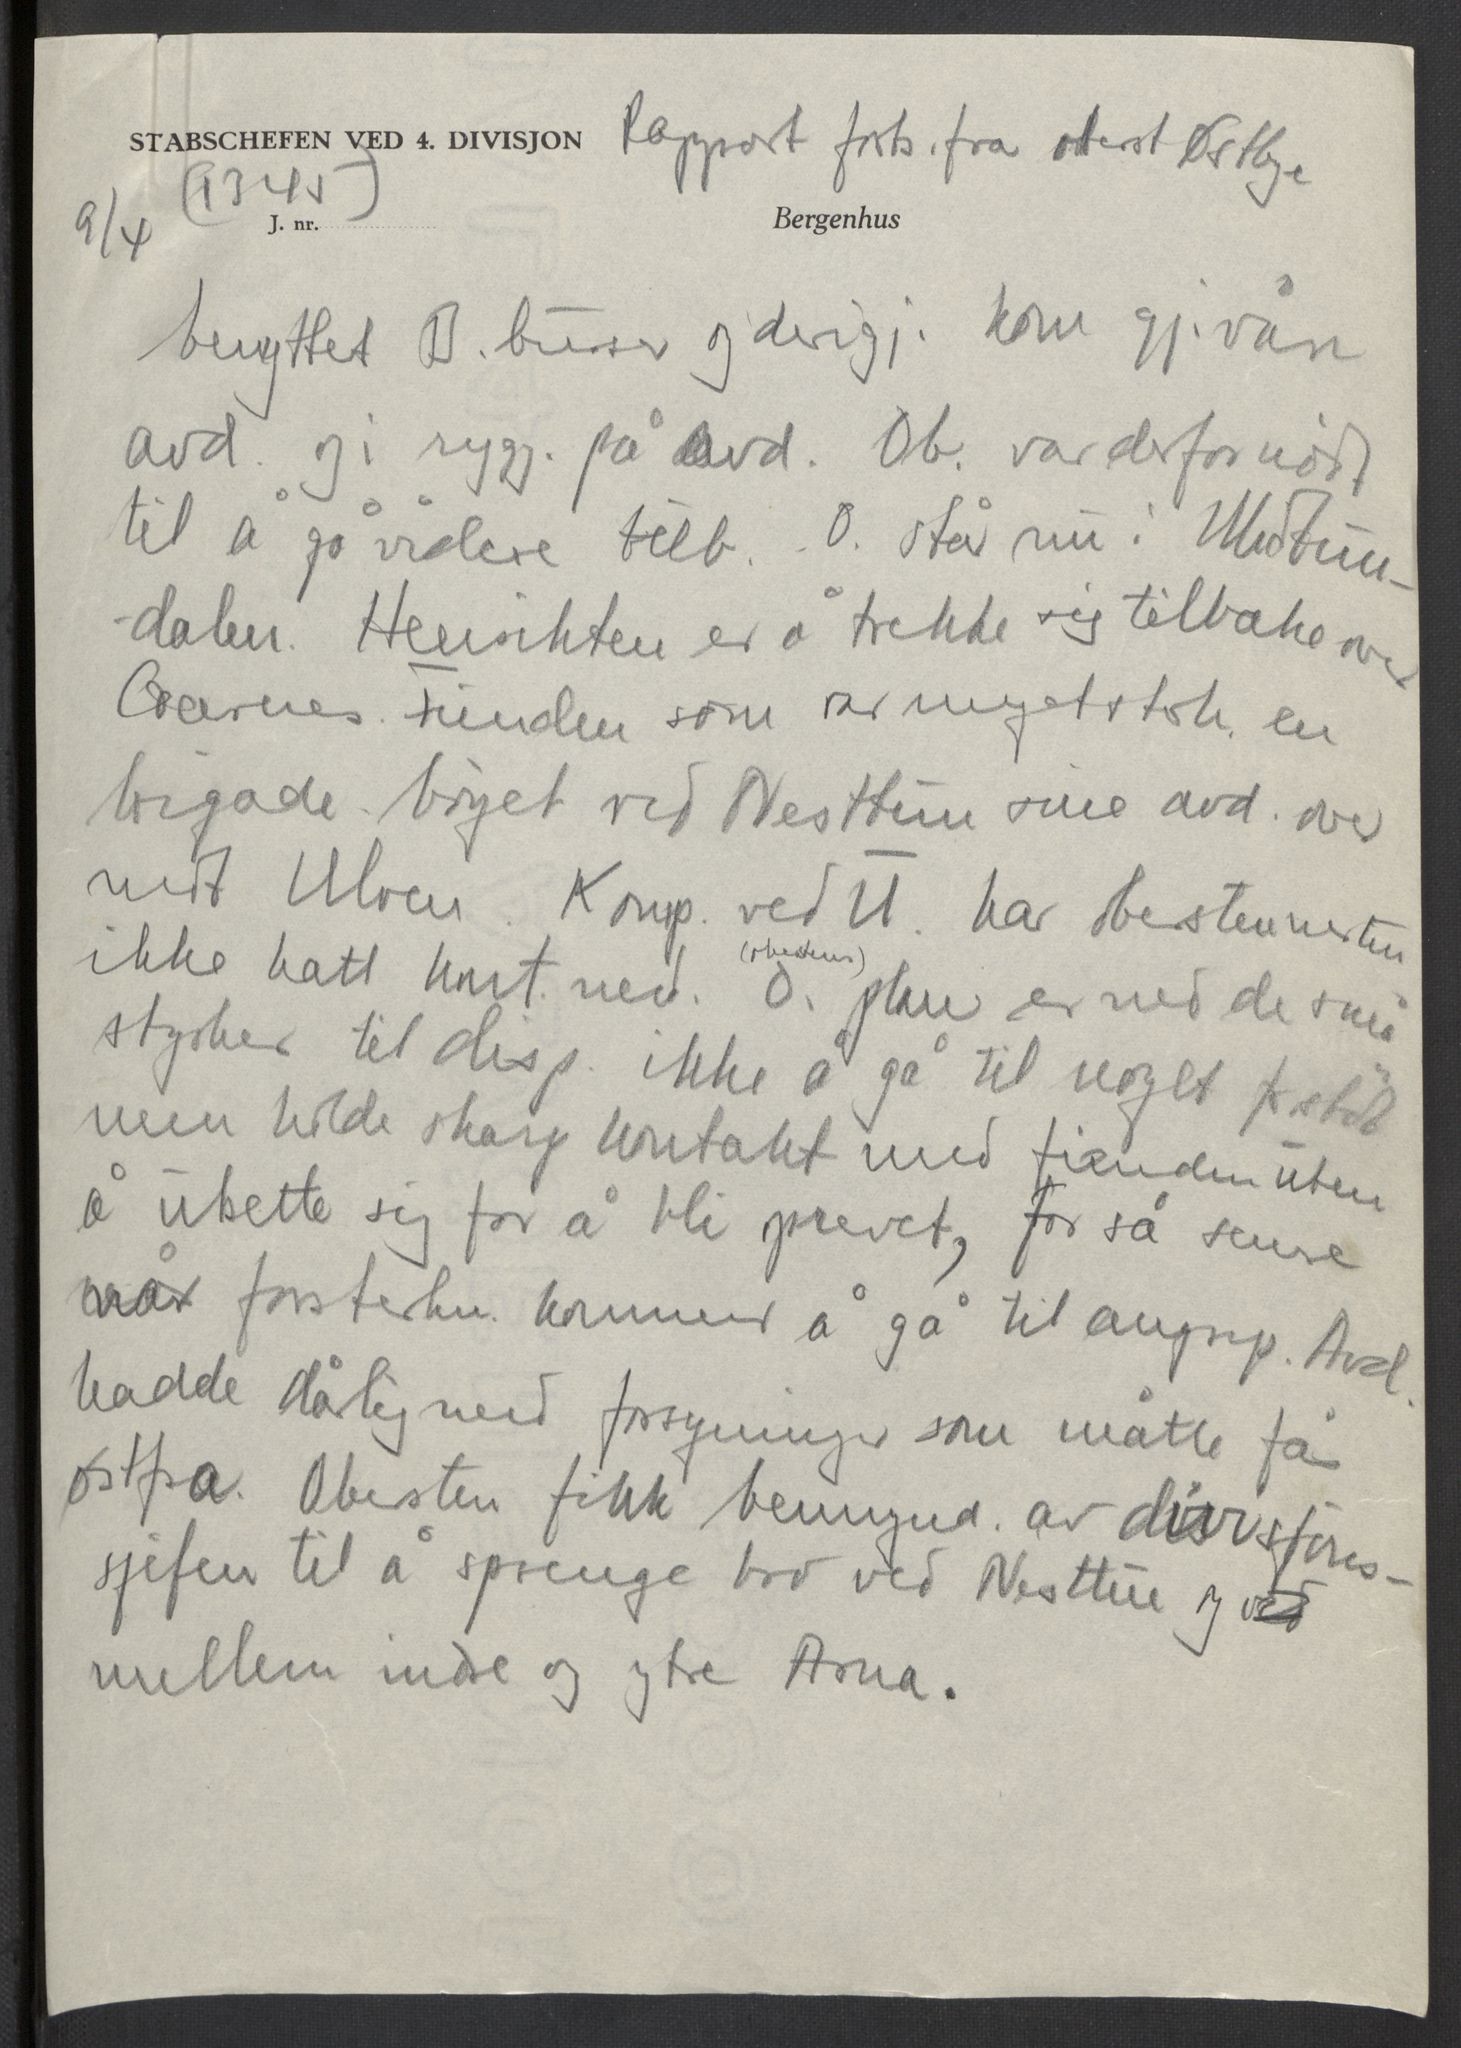 STABSCHEFEN VED 4. DIVISJON Rapport forts. fra oberst Østbye
(1345)
9/4 J. nr. Bergenhus
benyttet B. busser og derigj. kom gj. vår
avd. og i rygg. på avd. Ob. var derfor nødt
til å gå videre tilb. O. står nu i Midtun-
-dalen. Hensikten er å trekke sig tilbake over
Garnes. Fienden som var meget sterk. en
brigade. bøyet ved Nesttun sine avd. over
mot Ulven. Komp. ved U. har obersten
ikke hatt kont. med. (oberstens) O. plan er med de små
styrker til disp. ikke å gå til noget
men holde skarp kontakt med fienden uten
å utsette sig for å bli prevet, for så senere
når forsterkn. kommer å gå til angrep. Avd.
hadde dårlig med forsyninger som måtte få
østfra. Obersten fikk bemynd. av divisjons-
sjefen til å sprenge bro ved Nesttun og ved
mellem indre og ytre Arna.